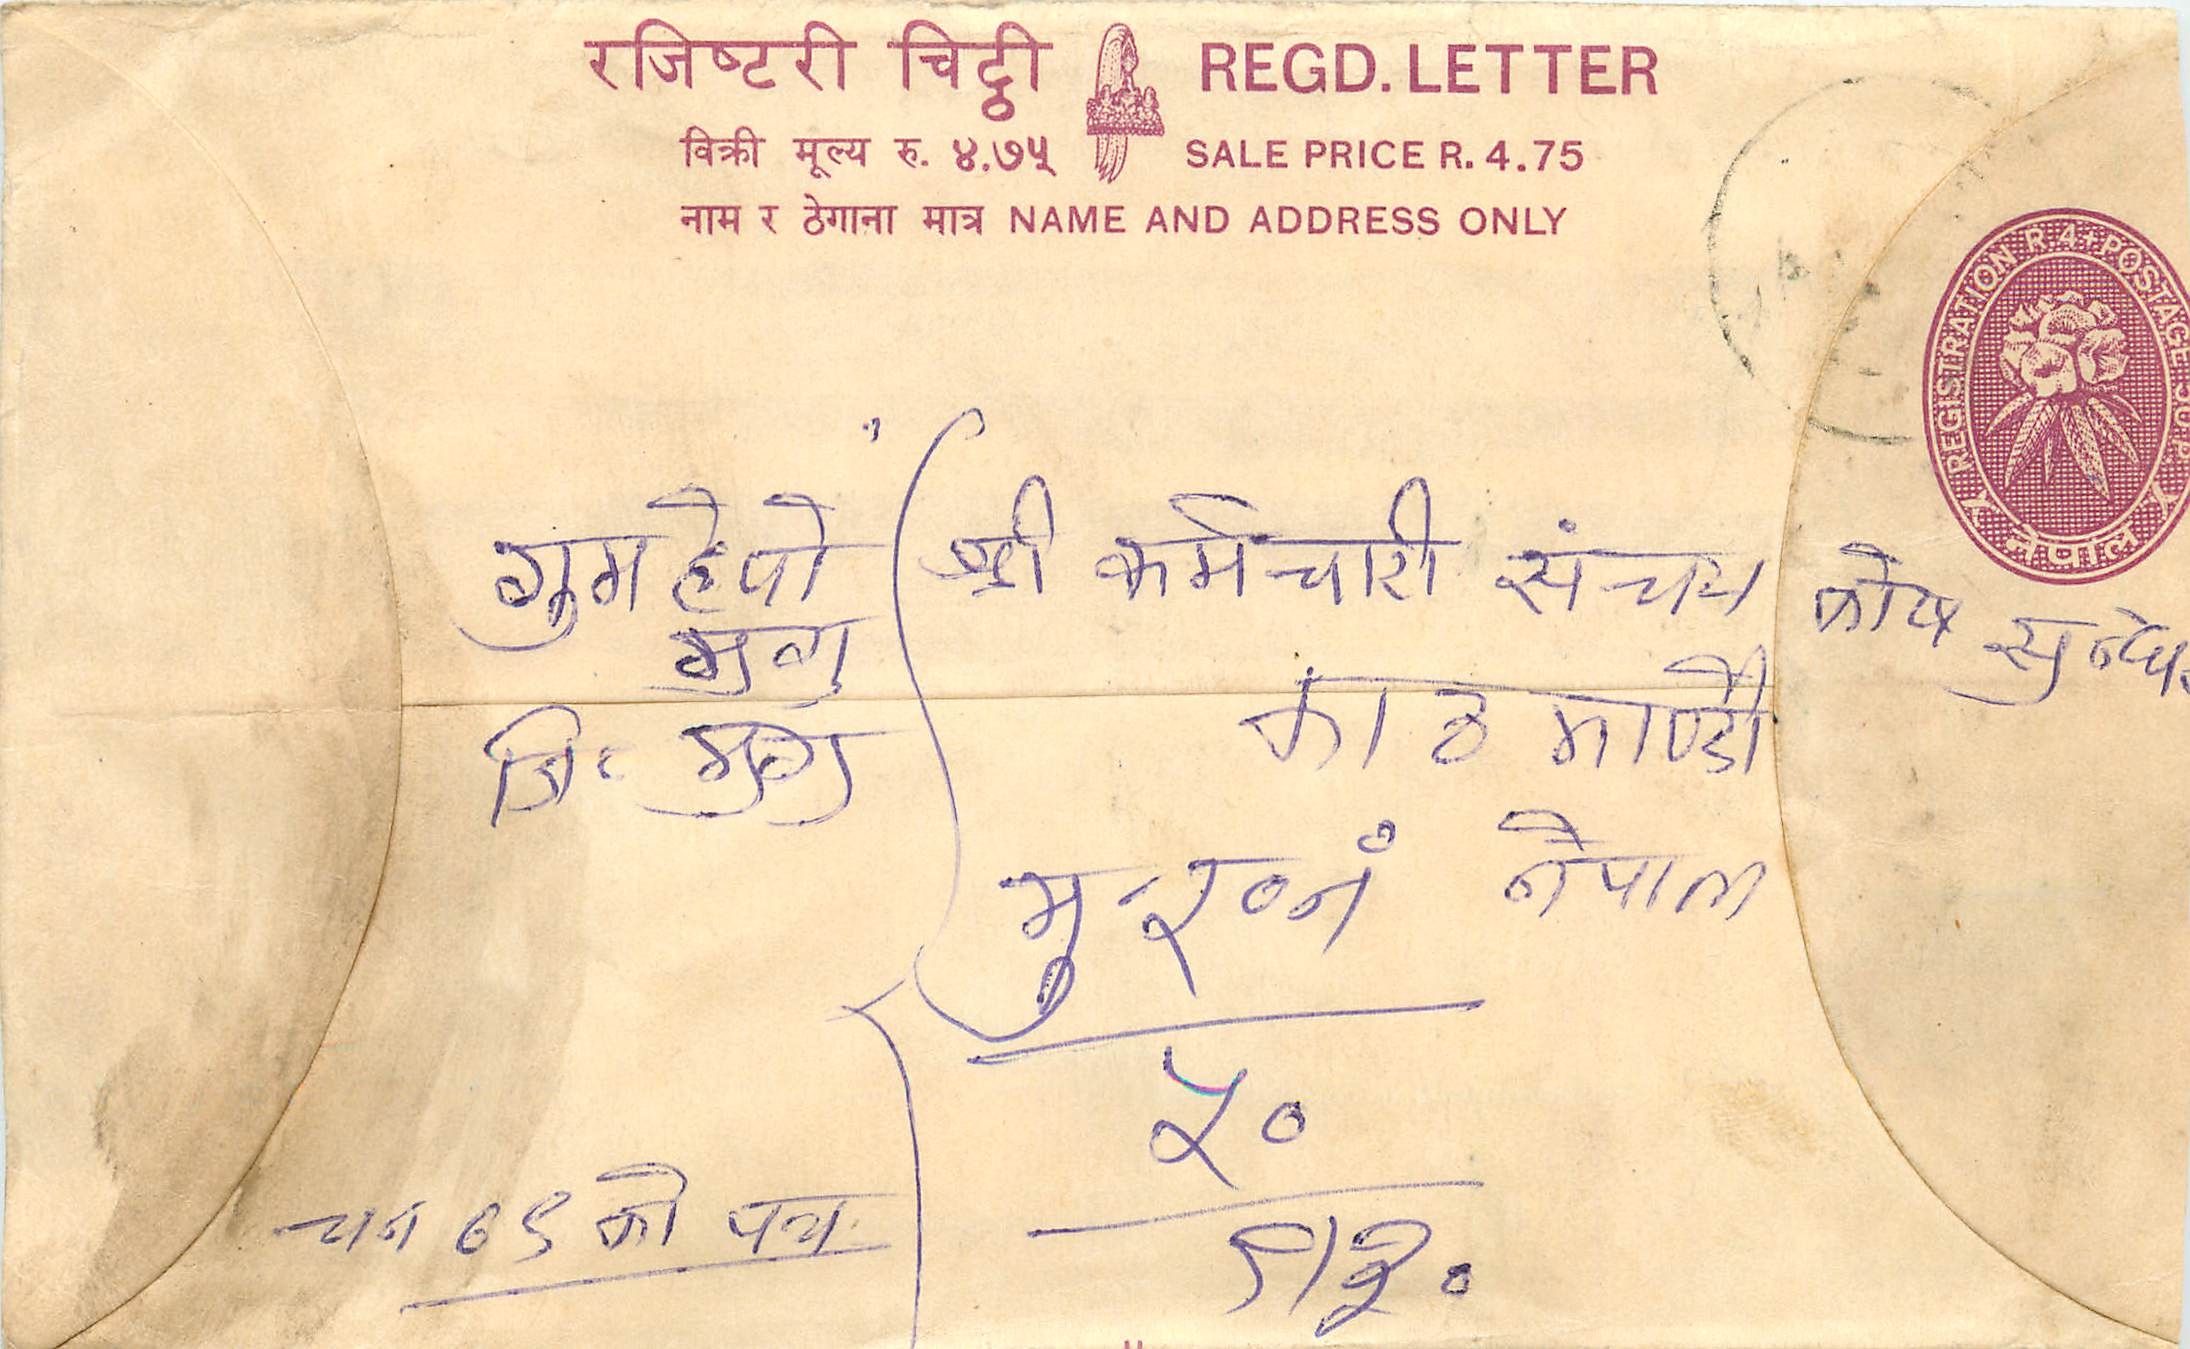 रजिष्टरी चिट्ठी REGD. LETTER
विक्री मूल्य रु. ४.७५ SALE PRICE R. 4.75
नाम र ठेगाना मात्र NAME AND ADDRESS ONLY
REGISTRATION R. 4+POSTAGE
नेपाल
श्री कर्मचारी संचय कोष
काठमाण्डौ
नेपाल
मुगु
जि. मुगु
५०
को पत्र